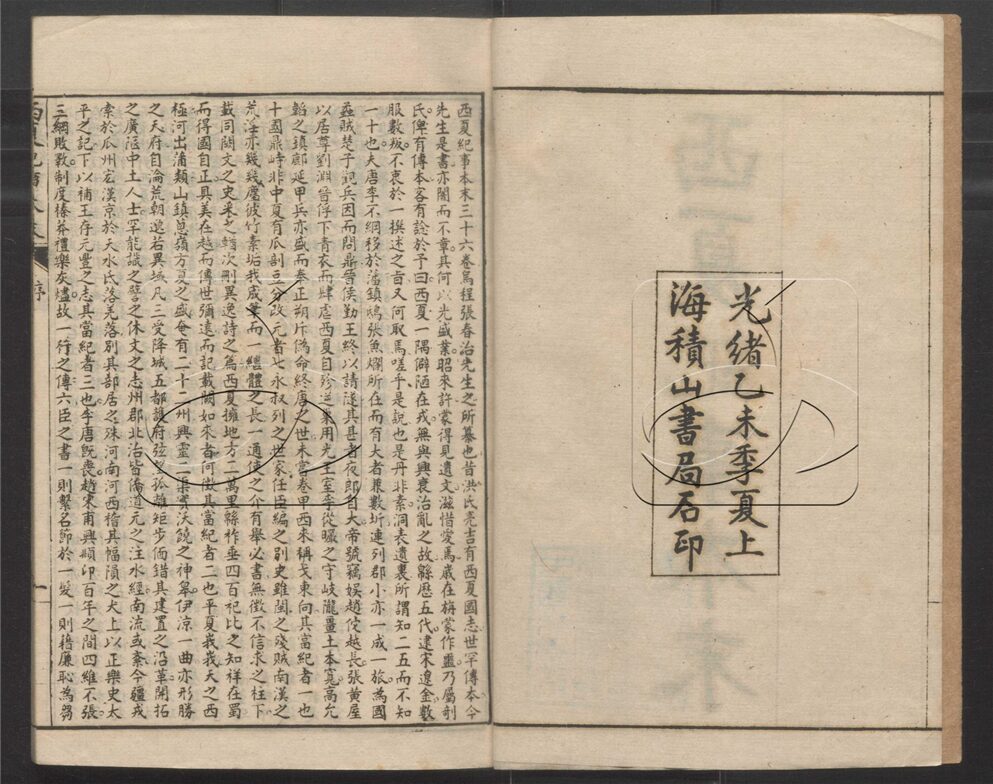 光緒乙未季夏上
海積山書局石印
西夏紀事本末三十六卷烏程張春治先生之所纂也昔洪氏亮吉有西夏國志世罕傳本今
先生是書亦闇而不章其何以光盛業昭來許蒙得見遺文滋惜愛焉歲在旃蒙作噩乃屬剞
氏俾有傳本客有諗於予曰西夏一隅僻陋在戎無與興衰治亂之故緜歷五代逮宋遼金數
服數叛不衷於一撰述之旨又何取焉嗟乎是說也是丹非素洞表遺裏所謂知二五而不知
一十也夫唐李不綱移於藩鎮鴟張魚爛所在而有大者兼數圻連列郡小亦一成一旅為國
蝨賊楚子觀兵因而問鼎晉侯勤王終以請遂其甚者夜郎自大帝號竊娛趙佗越長張黃屋
以居尊劉淵晉俘下青衣而肆虐西夏自珍逆巢用光王室李從曮之守岐隴畺土本寬高允
韜之鎮鄜延甲兵亦盛而奉正朔斥偽命終唐之世未嘗卷甲西來稱戈東向其當紀者一也
十國鼎峙非中夏有瓜剖豆分改元者七永叔列之世家任臣編之別史雖閩之殘賊南漢之
荒淫亦幾幾塵彼竹素垢我成筆而一繼體之長一通使之介有舉必書無徵不信求之柱下
載同闕文之史采之輶次刪異逸詩之篇西夏擁地方二萬里緜祚垂四百祀比之知祥在蜀
而得國自正具美在越而傳世彌遠而記載闕如來者何徵其當紀者二也平夏峩峩天之西
極河出蒲類山鎮蔥嶺方夏之盛奄有二十二州興靈二渠實沃饒之神皋伊涼一曲亦形勝
之天府自淪荒朝遼若異域凡三受降城五都護府弦望孤離矩步偭錯其建置之沿革開拓
之廣陿中土人士罕能識之譬之休文之志州郡北治皆僑道元之注水經南流或紊今疆戎
索於瓜州宏漢京於天水氐落羌落別其部居之殊河南河西稽其幅隕之大上以正樂史太
平之記下以補王存元豐之志其當紀者三也李唐旣喪趙宋甫興順卬百年之間四維不張
三綱敗斁制度榛莽禮樂灰燼故一行之傳六臣之書一則繫名節於一髮一則藉廉恥為芻
序
一